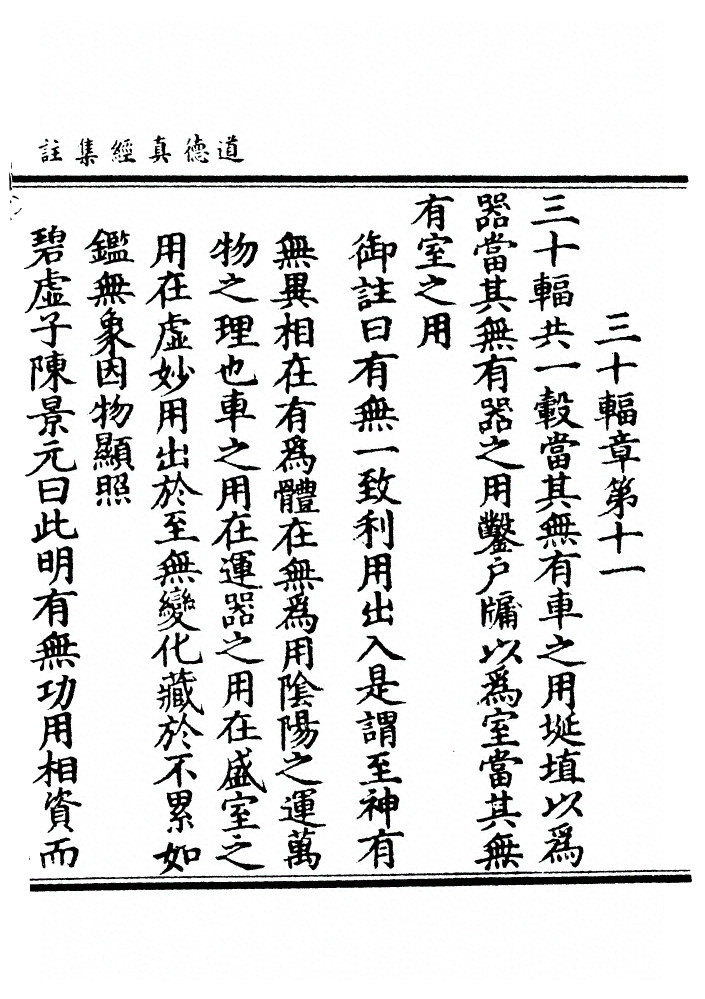 道德真經集註
三十輻章第十一
三十輻共一轂當其無有車之用埏埴以爲
器當其無有器之用鑿戶牖以爲室當其無
有室之用
御註曰有無一致利用出入是謂至神有
無異相在有爲體在無爲用陰陽之運萬
物之理也車之用在運器之用在盛室之
用在虛妙用出於至無變化藏於不累如
鑑無象因物顯照
碧虛子陳景元曰此明有無功用相資而